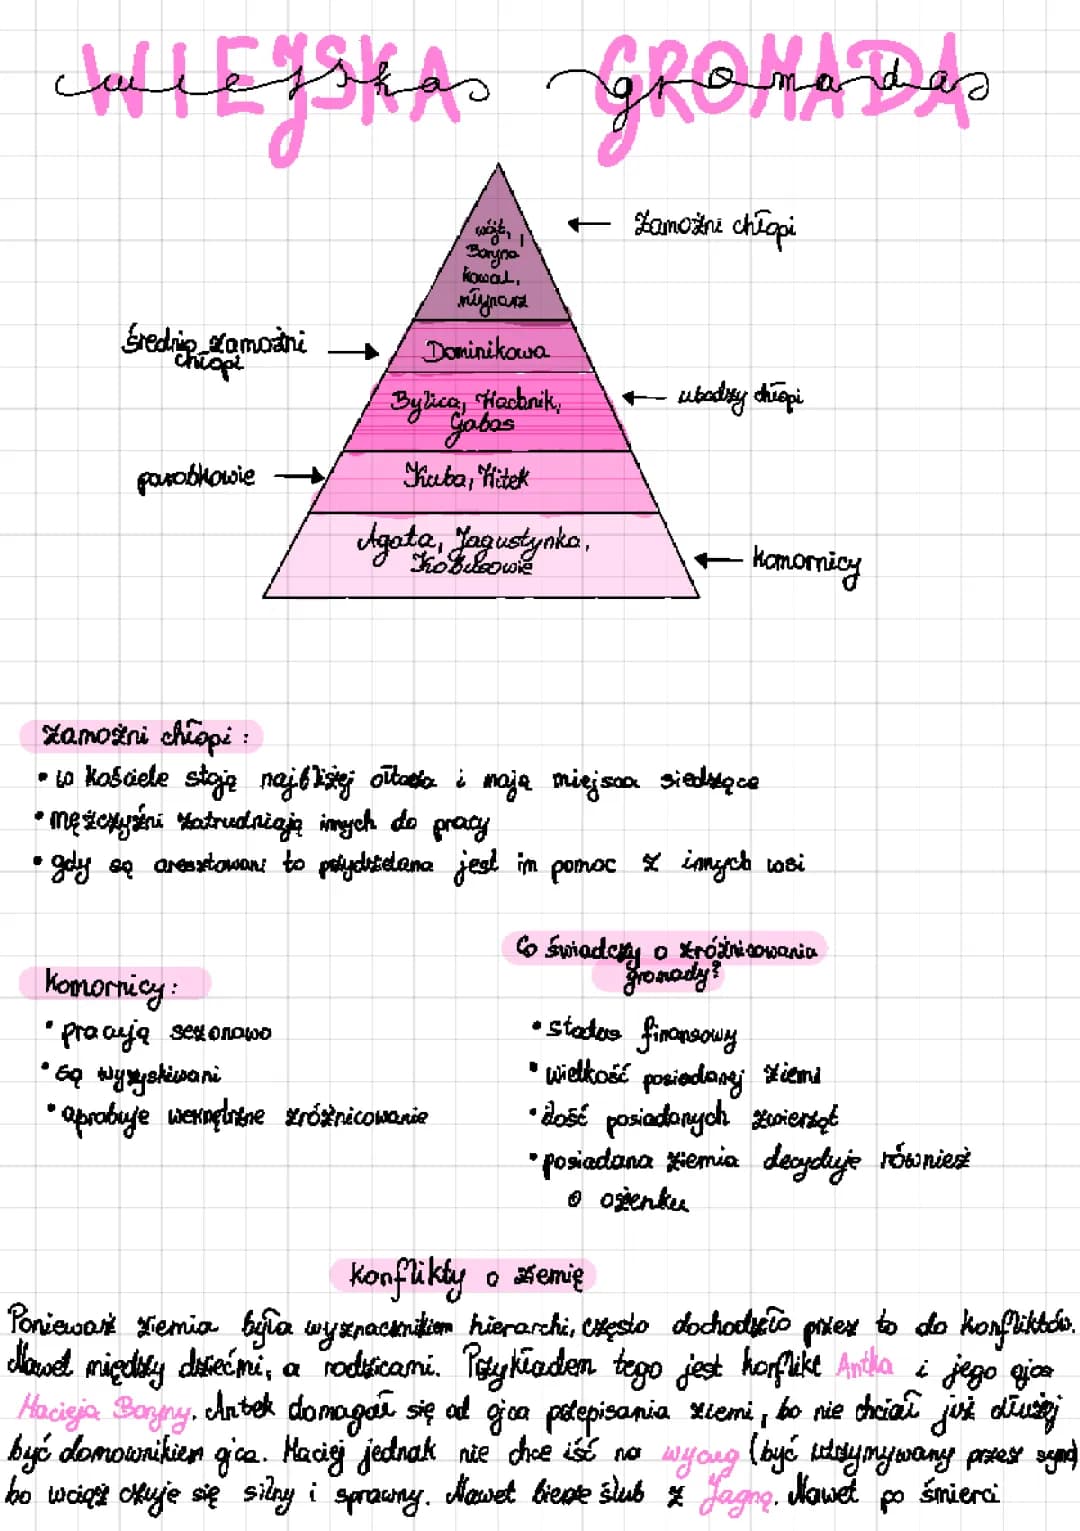 WIEJSKA GROMADA
wiejska gromada
wójt,
Boryna,
kowal,
młynarz
← zamożni chłopi
średnio zamożni
chłopi →
Dominikowa
Bylica,
Gabas
← ubodzy chłopi
parobkowie →
Kuba, Witek
Agata, Jagustynka,
← komornicy
zamożni chłopi:
• w kościele stoją najbliżej ołtarza i mają miejsca siedzące
• mężczyźni zatrudniają innych do pracy
• gdy są aresztowani to przydzielana jest im pomoc z innych wsi
Komornicy:
• pracują sezonowo
• są wyzyskiwani
• aprobuje wewnętrzne zróżnicowanie
Co świadczy o zróżnicowania
gromady?
• status finansowy
• wielkość posiadanej ziemi
• ilość posiadanych zwierząt
• posiadana ziemia decyduje również
o ożenku
Konflikty o ziemię
Ponieważ ziemia była wyznacznikiem hierarchi, często dochodziło przez to do konfliktów.
Nawet między dziećmi, a rodzicami. Przykładem tego jest konflikt Antka i jego ojca
Macieja Boryny. Antek domagał się od ojca przepisania ziemi, bo nie chciał już dłużej
być domownikiem ojca. Maciej jednak nie chce iść na wycug (być utrzymywany przez syna)
bo wciąż czuje się silny i sprawny. Nawet bierze ślub z Jagną. Nawet po śmierci